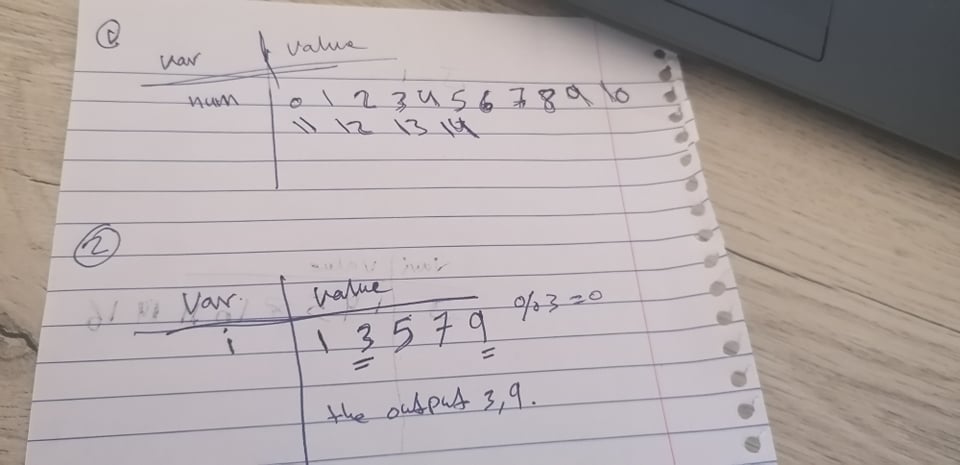 ①
var value
num 0 1 2 3 4 5 6 7 8 9 10
11 12 13 14
②
Var. value
i 1 3 5 7 9 %3=0
the output 3,9.